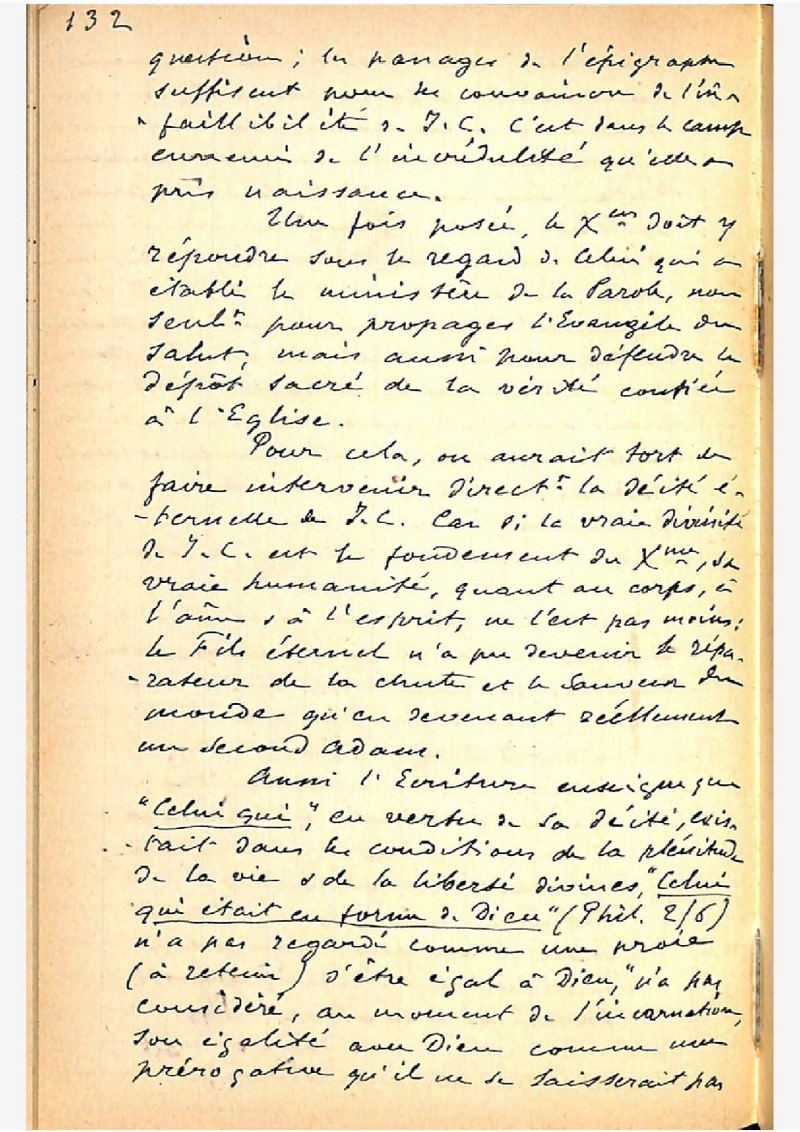 132
question ; les passages de l'épigraphe
suffisent pour se convaincre de l'in-
- faillibilité de J.C. C'est dans le camp
ennemi de l'incrédulité qu'elle a
pris naissance.
Une fois posée, le Xien doit y
répondre sous le regard de Celui qui a
établi le ministère de la Parole, non
seult pour propager l'Evangile du
salut, mais aussi pour défendre le
dépôt sacré de la vérité confiée
à l'Eglise.
Pour cela, on aurait tort de
faire intervenir directt la déité é-
- ternelle de J.C. Car si la vraie divinité
de J.C. est le fondement du Xme, sa
vraie humanité, quant au corps, à
l'âme & à l'esprit, ne l'est pas moins :
le Fils éternel n'a pu devenir le répa-
- rateur de la chute et le Sauveur du
monde qu'en devenant réellement
un second Adam.
Aussi l'Ecriture enseigne que
"Celui qui", en vertu de sa déité, exis-
- tait dans les conditions de la plénitude
de la vie & de la liberté divines, "Celui
qui était en forme de Dieu" (Phil. 2/6)
n'a pas regardé comme une proie
(à retenir) d'être égal à Dieu," n'a pas
considéré, au moment de l'incarnation,
son égalité avec Dieu comme une
prérogative qu'il ne se laisserait pas